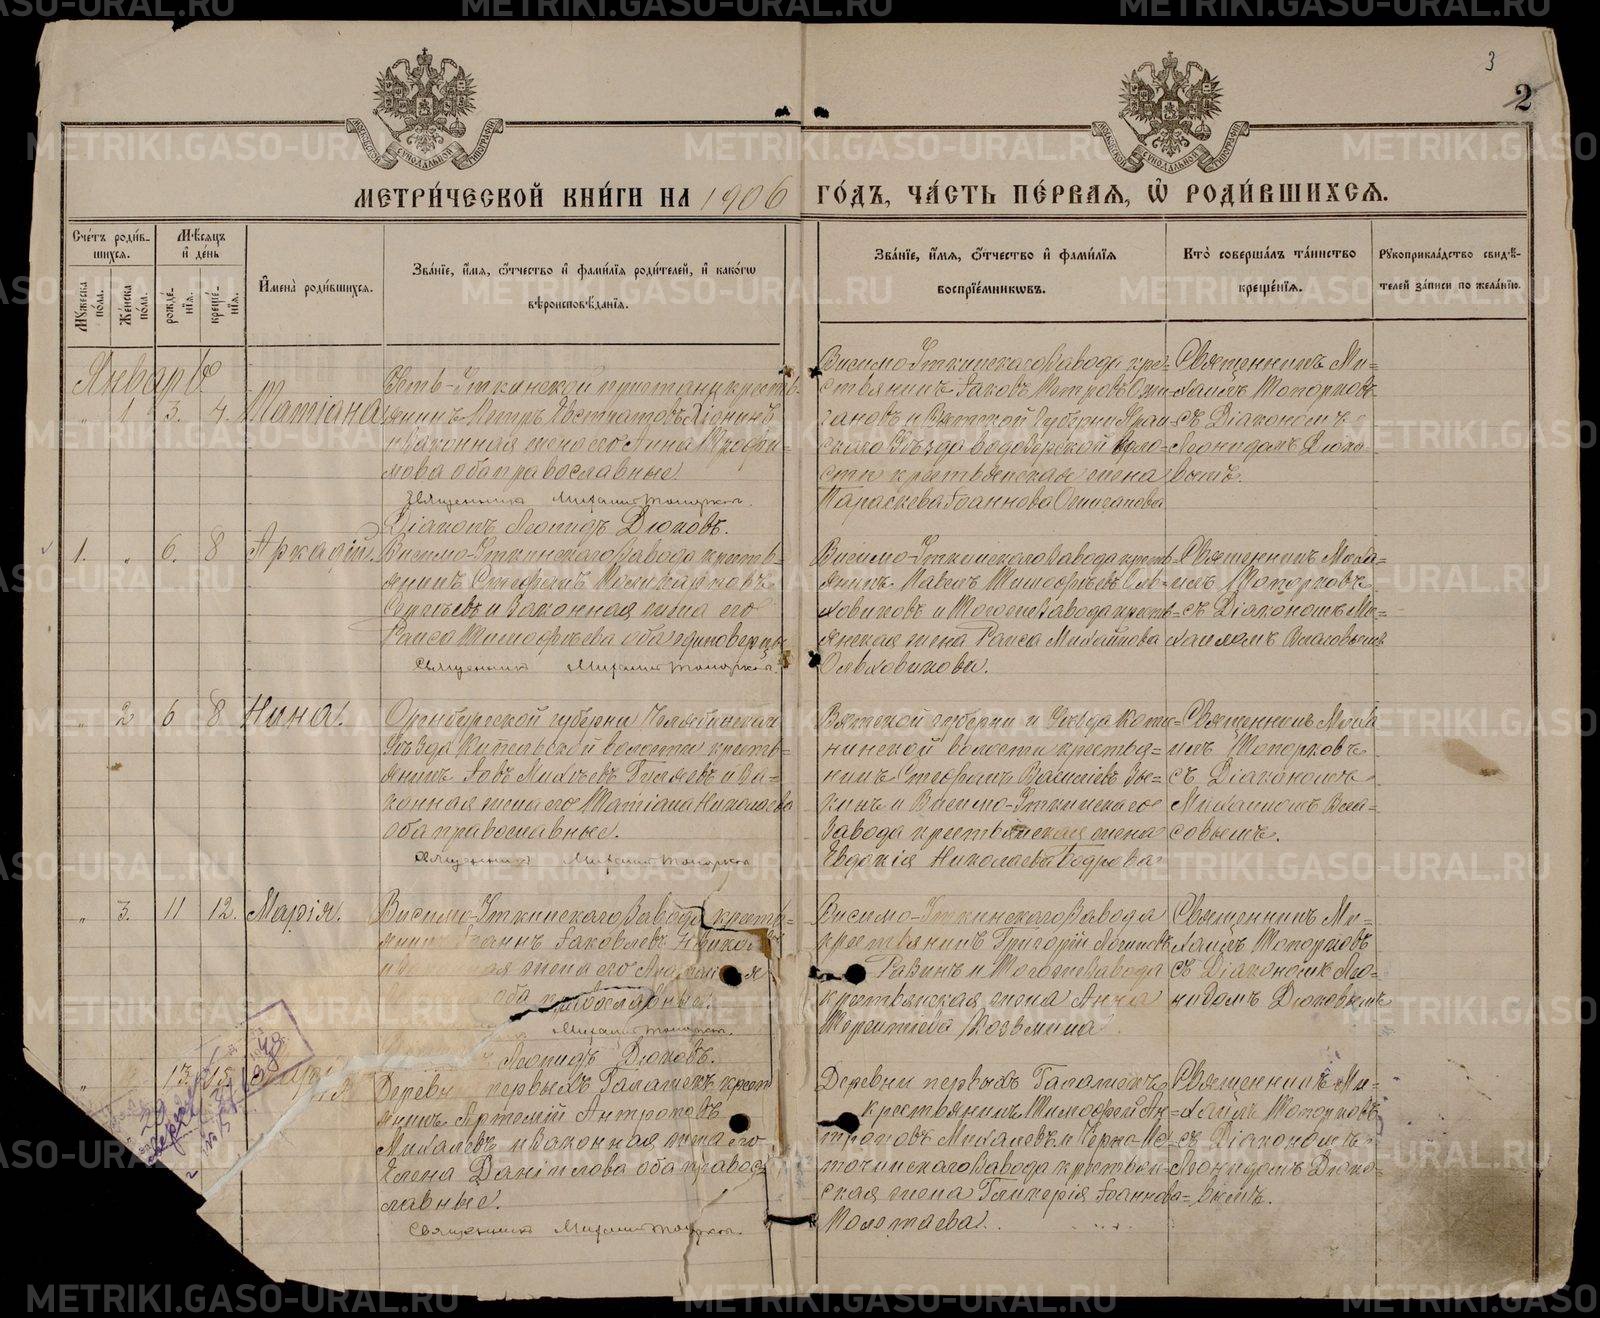 3
2
МОСКОВСКОЙ СѴНОДАЛЬНОЙ ТИПОГРАФІИ
МОСКОВСКОЙ СѴНОДАЛЬНОЙ ТИПОГРАФІИ
МЕТРИ́ЧЕСКОЙ КНИ́ГИ НА 1906 ГО́ДЪ, ЧА́СТЬ ПЕ́РВАЯ, Ѡ РОДИ́ВШИХСЯ.
Сче́тъ роди́в-
шихся.
Му́жеска по́ла.
Же́нска по́ла.
Мѣ́сяцъ
и де́нь
рожде́нія.
креще́нія.
Имена̀ роди́вшихся.
Зва́ніе, и́мя, ѻ́тчество и фами́лія роди́телей, и како́гѡ
вѣроисповѣ́данія.
Зва́ніе, и́мя, ѻ́тчество и фами́лія
воспріе́мникѡвъ.
Кто̀ соверша́лъ та́инство
креще́нія.
Рукоприкла́дство свидѣ́-
телей за́писи по жела́нію.
Январь
" 1 3. 4. Татіана
Усть-Уткинской пристани кресть-
янинъ Петръ Евстратовъ
и законная жена его Анна Трофи-
мова оба православные.
Священникъ Михаилъ Топорковъ.
Діаконъ Леонидъ Дюковъ.
Висимо-Уткинскаго Завода кре-
стьянинъ Іаковъ Петровъ Ожи-
гановъ и Вятской Губерніи Яран-
скаго Уѣзда волости
крестьянская жена
Параскева Іоаннова
Священникъ Ми-
хаилъ Топорковъ
съ Діакономъ
Леонидомъ Дюко-
вымъ.
1. " 6. 8 Аркадій.
Висимо-Уткинскаго Завода кресть-
янинъ Стефанъ
Сергѣевъ и законная жена его
Раиса Тимофѣева оба единоверцы
Священникъ Михаилъ Топорковъ.
Висимо-Уткинскаго Завода кресть-
янинъ Павелъ Тимофѣевъ Оль-
ховиковъ и Тогоже Завода кресть-
янская жена Раиса Михайлова
Ольховикова.
Священникъ Миха-
илъ Топорковъ
съ Діакономъ Ми-
хаиломъ Власовымъ
" 2 6 8 Нина.
Оренбургской губерніи Челябинскаго
Уѣзда Кипельской волости кресть-
янинъ Іовъ Михѣевъ и За-
конная жена его Татіана Николаева
оба православные.
Священникъ Михаилъ Топорковъ
Вятской губерніи и Уѣзда
волости крестья-
нинъ Стефанъ Василіевъ Зы-
кинъ и Висимо-Уткинскаго
Завода крестьянская жена
Евдокія Николаева Бодрова
Священникъ Миха
илъ Топорковъ
съ Діакономъ
Михаиломъ Вла-
совымъ.
" 3. 11 12. Марія.
Висимо-Уткинскаго Завода кресть-
янинъ Іоаннъ Іаковлевъ
жена его
оба православные.
Михаилъ Топорковъ.
Леонидъ Дюковъ.
Висимо-Уткинскаго Завода
крестьянинъ Григорій Логиновъ
Равинъ и Тогоже Завода
крестьянская жена Анна
Терентіева Козьмина
Священникъ Ми-
хаилъ Топорковъ
съ Діакономъ Лео-
нидомъ Дюковымъ
" 13. 15.
Деревни первыхъ Галашекъ крест
янинъ Артемій Антроповъ
Михалевъ и законная жена его
Елена Даніилова оба правос-
лавные.
Священникъ Михаилъ Топорковъ.
Деревни первыхъ Галашекъ
крестьянинъ Тимофей Ан-
троповъ Михалевъ и Черно-Ис-
точинскаго Завода крестьян-
ская жена Гликерія Іоаннова
Полотаева.
Священникъ Ми-
хаилъ Топорковъ
съ Діакономъ
Леонидомъ Дюко-
вымъ.